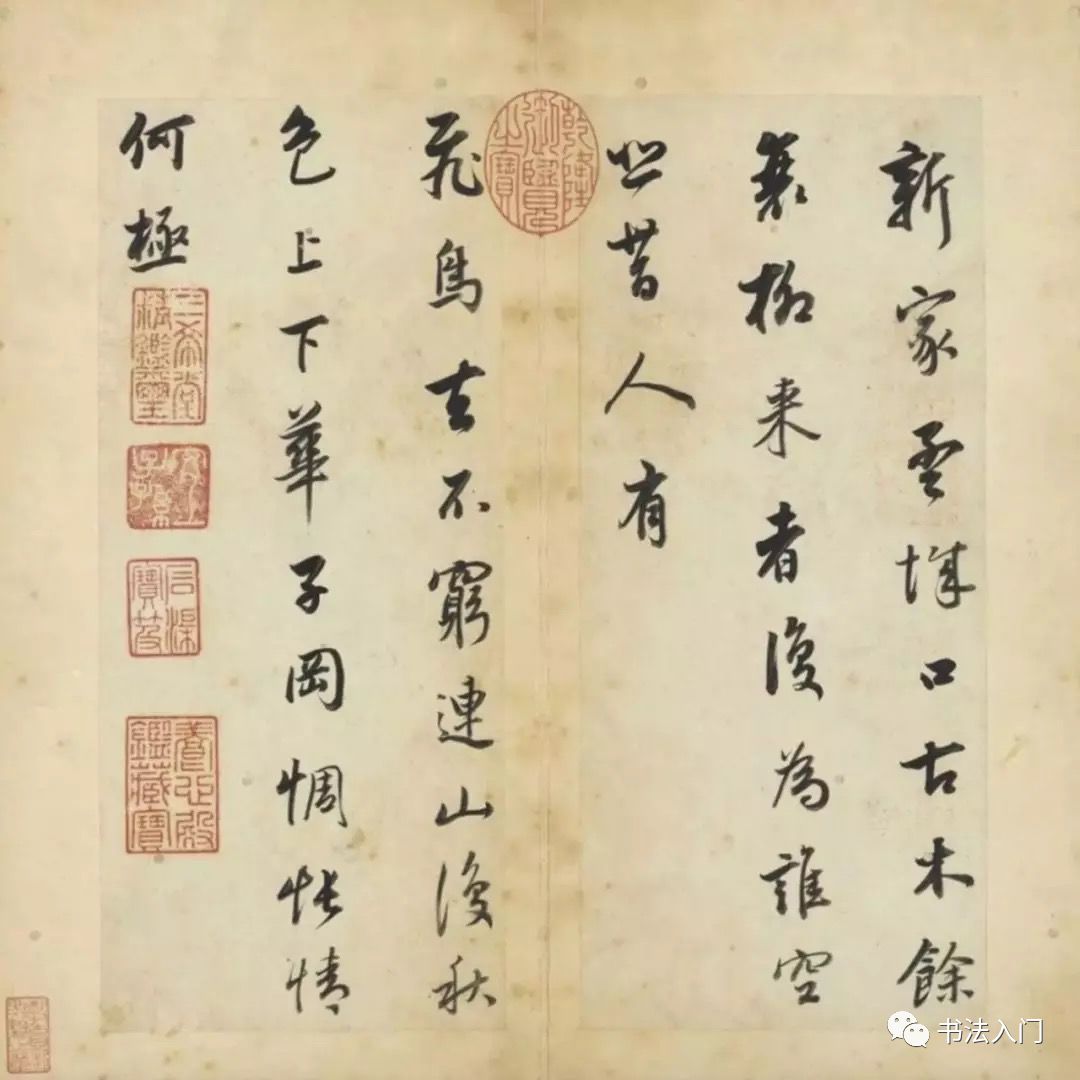 新家孟城口古木餘
衰柳来者復為誰空
悲昔人有
乾隆御覽之寶
飛鳥去不窮連山復秋
色上下華子岡惆悵情
何極
三希堂精鑑璽
宜子孫
石渠寶笈
養心殿鑑藏寶
书法入门